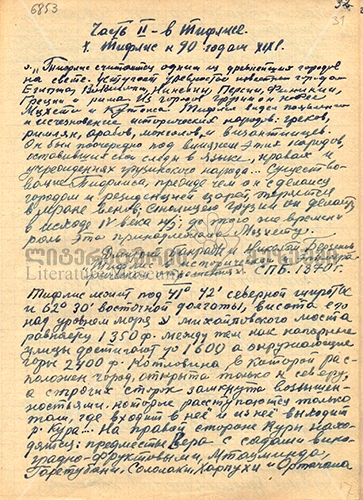 6853
32
31
Часть II - в Тифлисе.
1. Тифлис к 90 годам XIX в.
"Тифлис считается одним из древнейших городов
на свете. Уступает древностью известным городам
Египта, Вавилонии, Ниневии, Персии, Финикии,
Греции и Рима. Из городов Грузии он моложе
Мцхети и Кутаиси. Тифлис видел появление
и исчезновение исторических народов: греков,
римлян, арабов, монголов и византийцев.
Он был поочередно под влиянием этих народов,
оставивших свои следы в языке, нравах и
учреждениях грузинского народа... Существо-
вание Тифлиса, прежде чем он сделался
городом и резиденцией царей, теряется
в мраке веков; столицей Грузии он делается
в исходе IV века; до этого же времени
роль эта принадлежала Мцхету.
СПБ. 1870 г.
ლიტერატურის
Literature Museum
Тифлис лежит под 41° 42' северной широты
и 62° 30' восточной долготы, высота его
над уровнем моря у михайловского моста
равняется 1350 ф. между тем как нагорные
улицы достигают до 1600 а окружающие
горы 2400 ф. Котловина в которой рас-
положен город, открыта только к северу,
а с прочих сторон замкнута возвышен-
ностями, которые расступаются только
там, где входит в неё и из неё выходит
р. Кура... На правой стороне Куры нахо-
дятся: предместье Вера с садами вино-
градно-фруктовыми, Мтацминда,
Гаретубани, Сололаки, Харпухи и Ортачала